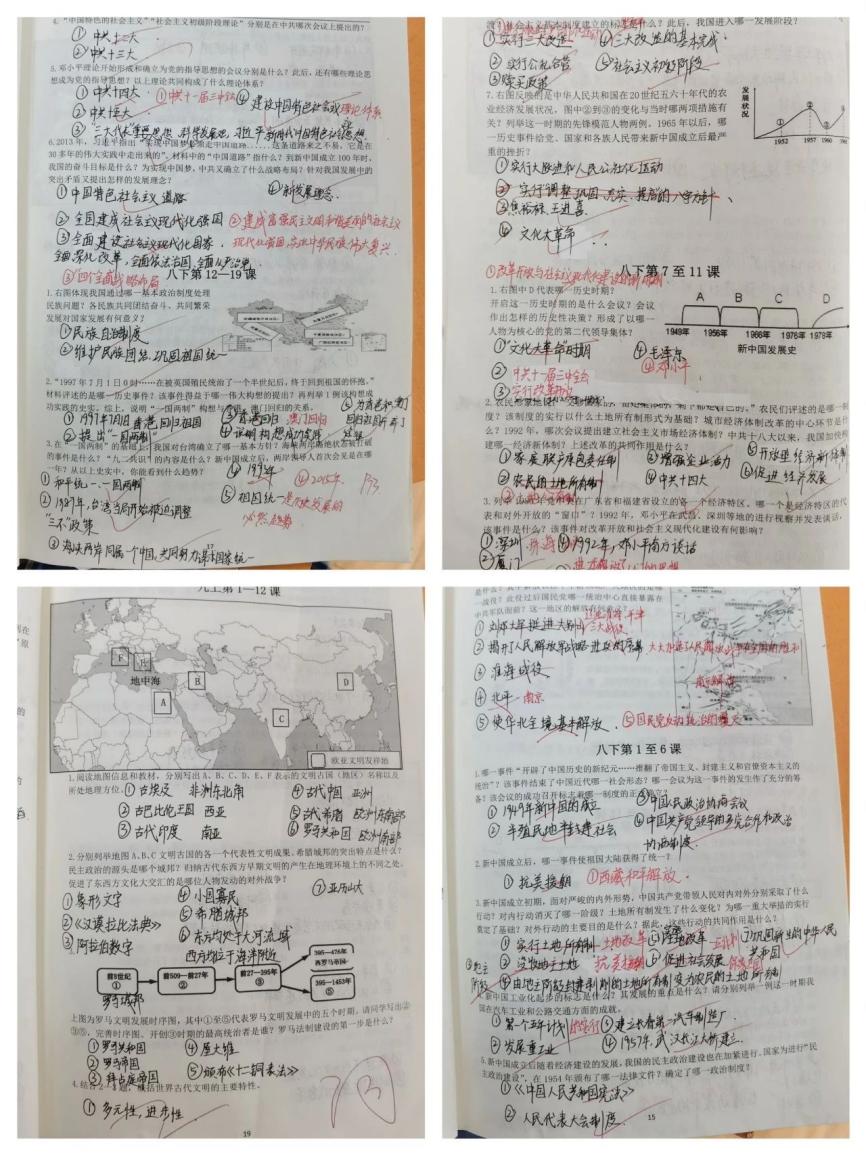 4."中国特色的社会主义""社会主义初级阶段理论"分别是在中共哪次会议上提出的?
①中共十二大
②中共十三大
5.邓小平理论开始形成和确立为党的指导思想的会议分别是什么?此后,还有哪些理论思
想成为党的指导思想?以上理论共同构成了什么理论体系?
①中共十四大 ①中共十一届三中全会 ④建设中国特色社会主义理论体系
②中共十五大
③"三个代表"重要思想 科学发展观,习近平新时代中国特色社会主义思想
6.2013年,习近平指出"实现中国梦必须走中国道路……这条道路来之不易,它是在
30多年的伟大实践中走出来的"。材料中的"中国道路"指什么?到新中国成立100年时,
我国的奋斗目标是什么?为实现中国梦,中共又确立了什么战略布局?针对我国发展中的
突出矛盾又提出怎样的发展理念?
①中国特色社会主义道路 ④新发展理念
②全国建成社会主义现代化强国 ②建成富强民主文明和谐美丽的社会主义
③全面建设社会主义现代化国家, 现代化强国,实现中华民族伟大复兴
全面深化改革,全面依法治国,全面从严治党
③"四个全面"战略布局
八下第12—19课
1.右图体现我国通过哪一基本政治制度处理
民族问题?各民族共同团结奋斗、共同繁荣
发展对国家发展有何意义?
①民族自治制度
②维护民族团结,巩固祖国统一
2."1997年7月1日0时……在被英国殖民统治了一个半世纪后,终于回到祖国的怀抱。"
材料评述的是哪一历史事件?该事件得益于哪一伟大构想的提出?再列举1例该构想成
功实践的史实。综上,说明"一国两制"构想与香港、澳门回归的关系。
①1997年7月1日香港回归祖国 ③香港回归 澳门回归
②提出"一国两制" ④证明构想成功实践
3.在"一国两制"的基础上,我国对台湾确立了哪一基本方针?海峡两岸隔绝状态被打破
的事件是什么?"九二共识"的内容是什么?新中国成立后,两岸领导人首次会见是在哪
一年?从以上史实中,你能看到什么趋势?
①和平统一、一国两制 ④2015年
②1987年,台湾当局开始被迫调整 ⑤祖国统一是历史发展的
"三不"政策 必然趋势
③海峡两岸同属一个中国,共同努力谋求国家统一
17
渡?社会主义基本制度建立的标志是什么?此后,我国进入哪一发展阶段?
①实行三大改造 ④三大改造的基本完成
②实行公私合营 ⑤社会主义初级阶段
③赎买政策
7.右图反映的是中华人民共和国在20世纪五六十年代的农
业经济发展状况,图中②到③的变化与当时哪两项措施有
关?列举这一时期的先锋模范人物两例。1965年以后,哪
一历史事件给党、国家和各族人民带来新中国成立后最严
重的挫折?
发展状况
①
②
③
1952 1957 1960
①实行大跃进和人民公社化运动
②实行调整、巩固、充实、提高的八字方针
③焦裕禄、王进喜
④文化大革命
①改革开放与社会主义现代化建设的新时期
八下第7至11课
1.右图中D代表哪一历史时期?
开启这一历史时期的是什么会议?会议
作出怎样的历史性决策?形成了以哪一
人物为核心的党的第二代领导集体?
A B C D
1949年 1956年 1966年 1976年 1978年
新中国发展史
①"文化大革命"时期 ④毛泽东
②中共十一届三中全会 ④邓小平
③实行改革开放
"农民们评述的是哪一制
度?该制度的实行以什么土地所有制形式为基础?城市经济体制改革的中心环节是什
么?1992年,哪次会议提出建立社会主义市场经济体制?中共十八大以来,我国加快构
建哪一经济新体制?上述改革的共同作用是什么?
①家庭联产承包责任制 ③增强企业活力 ⑤开放型经济新体制
②农民的土地所有制 ④中共十四大 ⑥促进经济发展
3.列举1980年党中央在广东省和福建省设立的各一个经济特区。哪一个是经济特区的代
表和对外开放的"窗口"?1992年,邓小平在武昌、深圳等地的进行视察并发表谈话,
该事件是什么?该事件对改革开放和社会主义现代化建设有何影响?
①深圳 珠海 ④1992年,邓小平南方谈话
②厦门
九上第1—12课
F
E
地中海
B
A
D
C
欧亚文明发祥地
1.阅读地图信息和教材,分别写出A、B、C、D、E、F表示的文明古国(地区)名称以及
所处地理方位。①古埃及 非洲东北角 ④古代中国 亚洲
②古巴比伦王国 西亚 ⑤古代希腊 欧洲东南部
③古代印度 南亚 ⑥罗马共和国 欧洲南部
2.分别列举地图A、B、C文明古国的各一个代表性文明成果。希腊城邦的突出特点是什么?
民主政治的源头是哪个城邦?归纳古代东西方早期文明的产生在地理环境上的不同之处。
促进了东西方文化大交汇的是哪位人物发动的对外战争?
①象形文字 ④小国寡民 ⑦亚历山大
②《汉谟拉比法典》 ⑤希腊城邦
③阿拉伯数字 ⑥东方均处于大河流域
西方均位于海洋附近
前8世纪
①
前509—前27年
②
前27—395年
③
395—476年
西罗马帝国
395—1453年
⑤
罗马城邦
上图为罗马文明发展时序图,其中①至⑤代表罗马文明发展中的五个时期。请同学写出②
③⑤,完善时序图。开创③时期的最高统治者是谁?罗马法制建设的第一步是什么?
①罗马共和国 ④屋大维
②罗马帝国 ⑤颁布《十二铜表法》
③拜占庭帝国
4.结合2—3题,概括世界古代文明的主要特性。
①多元性,进步性
19
一战役?此役过后国民党哪一统治中心直接暴露在
中共军队面前?这一地区的解放有何意义?
①刘邓大军挺进大别山 三大战役
②揭开了人民解放军战略进攻的序幕 大大加速了人民解放战争在全国的胜利
③淮海战役
④北平 南京
⑤使华北全境基本解放 ⑤国民党反动统治的覆灭
八下第1至6课
1.哪一事件"开辟了中国历史的新纪元……推翻了帝国主义、封建主义和官僚资本主义的
统治"?该事件结束了中国近代哪一社会形态?哪一会议为这一事件的发生作了充分的筹
备?该会议的成功召开标志着哪一制度的正式确立?
①1949年新中国的成立 ③中国人民政治协商会议
②半殖民地半封建社会 ④中国共产党领导的多党合作和政治
协商制度
2.新中国成立后,哪一事件使祖国大陆获得了统一?
①抗美援朝 ①西藏和平解放
3.新中国成立初期,面对严峻的内外形势,中国共产党带领人民对内对外分别采取了什么
行动?对内行动消灭了哪一阶级?土地所有制发生了什么变化?为哪一重大举措的实行
奠定了基础?对外行动的主要目的是什么?据此,这些行动的共同作用是什么?
①实行土地所有制 土地改革 ⑦巩固新生的中华人民
抗美援朝 ⑥促进社会发展 共和国
③地主阶级
④由地主阶级封建剥削的土地所有制变为农民的土地所有制
4.新中国工业化起步的标志是什么?其发展的重点是什么?请分别列举一例这一时期我
国在汽车工业和公路交通方面的成就。
①第一个五年计划 的实行 ③建立长春第一汽车制造厂
②发展重工业 ④1957年,武汉长江大桥建立
5.新中国成立后随着经济建设的发展,我国的民主政治建设也在加紧进行。国家为进行"民
主政治建设",在1954年颁布了哪一法律文件?确定了哪一政治制度?
①《中国人民共和国宪法》
②人民代表大会制度
15